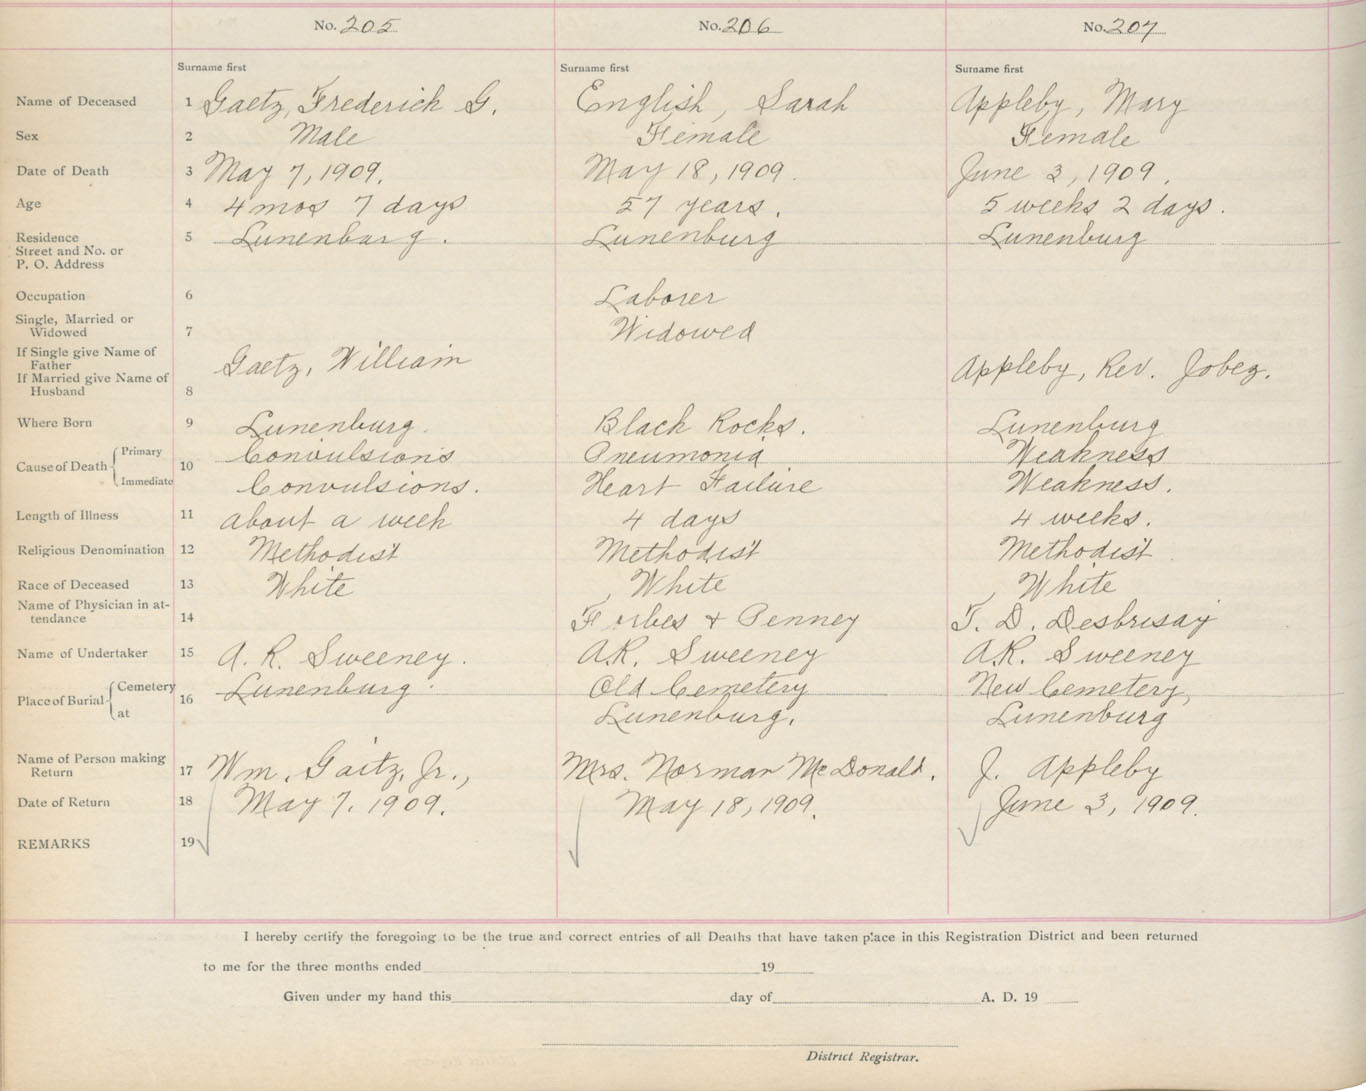 No. 205 No. 206 No. 207
Surname first Surname first Surname first
Name of Deceased 1 Gaetz, Frederick G. English, Sarah Appleby, Mary
Sex 2 Male Female Female
Date of Death 3 May 7, 1909. May 18, 1909. June 3, 1909.
Age 4 4 mos 7 days 57 years. 5 weeks 2 days.
Residence 5 Lunenburg. Lunenburg Lunenburg
Street and No. or
P. O. Address
Occupation 6 Laborer
Single, Married or
Widowed 7 Widowed
If Single give Name of
Father Gaetz, William Appleby, Rev. Jobez.
If Married give Name of
Husband 8
Where Born 9 Lunenburg. Black Rocks. Lunenburg
Cause of Death 10 Primary Convulsions Pneumonia Weakness
Immediate Convulsions. Heart Failure Weakness.
Length of Illness 11 about a week 4 days 4 weeks.
Religious Denomination 12 Methodist Methodist Methodist
Race of Deceased 13 White White White
Name of Physician in at-
tendance 14 Forbes + Penney T. D. Desbrisay
Name of Undertaker 15 A. R. Sweeney. A.R. Sweeney A.R. Sweeney
Place of Burial 16 Cemetery Lunenburg. Old Cemetery New Cemetery,
at Lunenburg. Lunenburg
Name of Person making
Return 17 Wm. Gaitz, Jr., Mrs. Norman McDonald. J. Appleby
Date of Return 18 May 7. 1909. May 18, 1909. June 3, 1909.
REMARKS 19
I hereby certify the foregoing to be the true and correct entries of all Deaths that have taken place in this Registration District and been returned
to me for the three months ended 19
Given under my hand this day of A. D. 19
District Registrar.